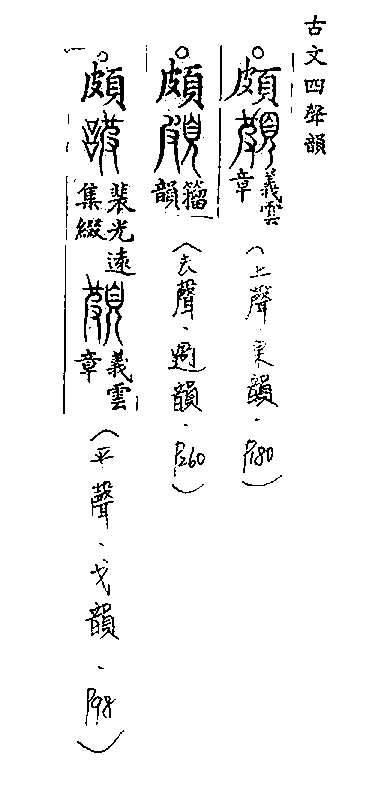 古文四聲韻
頗 義雲章 (上聲．果韻．P180)
頗 籀韻 (去聲．過韻．P260)
頗 裴光遠集綴 義雲章 (平聲．戈韻．P98)